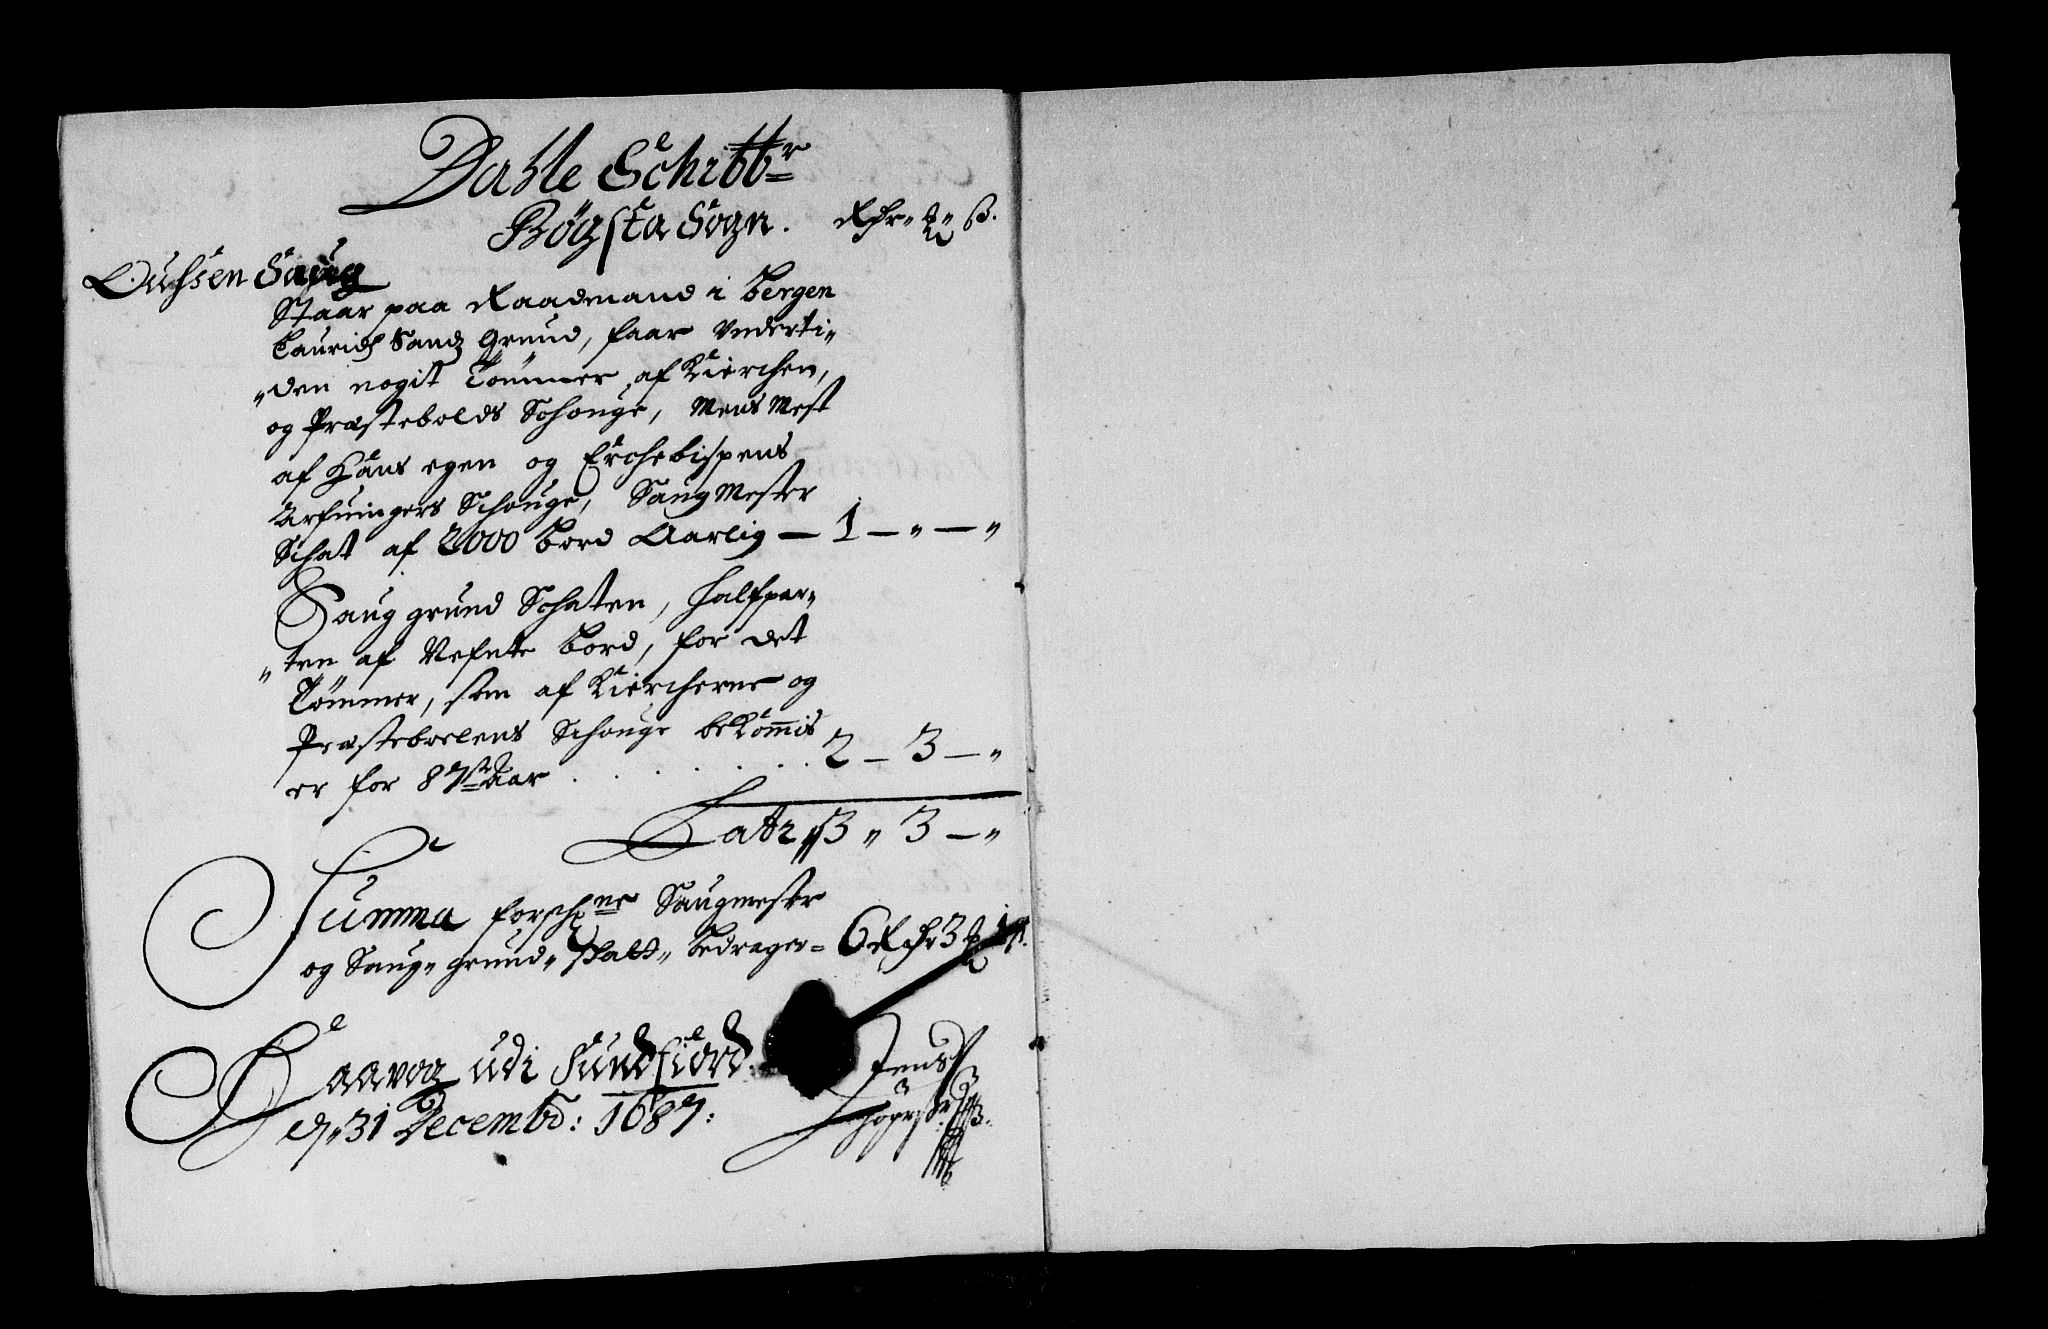 Dahle Schibbr
Bögsta Sogn. Rdr " ß.
Oussen Saug
Staar paa Raadmand i Bergen
Lauridz Sandz Grund, faar Vnderti-
"den nogit Tömmer af Kierchen,
og Præstebolds Schouge, Mens Mest
af Hans egen og Erchebispens
Arfuingers Schouge, Saug Mester
Schat af 2000 bord Aarlig — 1 — " — "
Saug grund Schaten, halfpar-
"ten af Nefnte bord, for det
Tömmer, som af Kiercherne og
Præstebolens Schouge bekommis
er for 87 Aar . . . . . . 2 — 3 — "
Latr 3 " 3 — "
Summa forschne Saugmester
og Saug " grund " Schatt " bedrager = 6 Rdr 3
Waavog udi Sundfiord.
d. 31 Decembr: 1687:
Jens